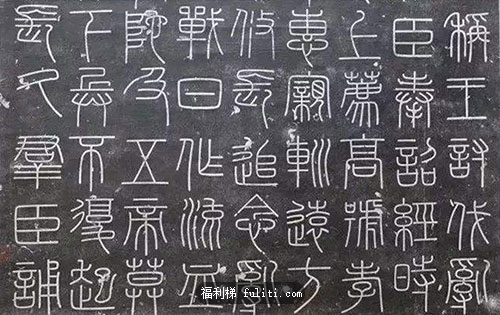 稱王討伐亂
臣奉詔經時
上薦高號孝
惠親巡遠方
攸長追念亂
戰日作流血
陀及五帝莫
下兵不復起
長久群臣誦
福利梯 fuliti.com